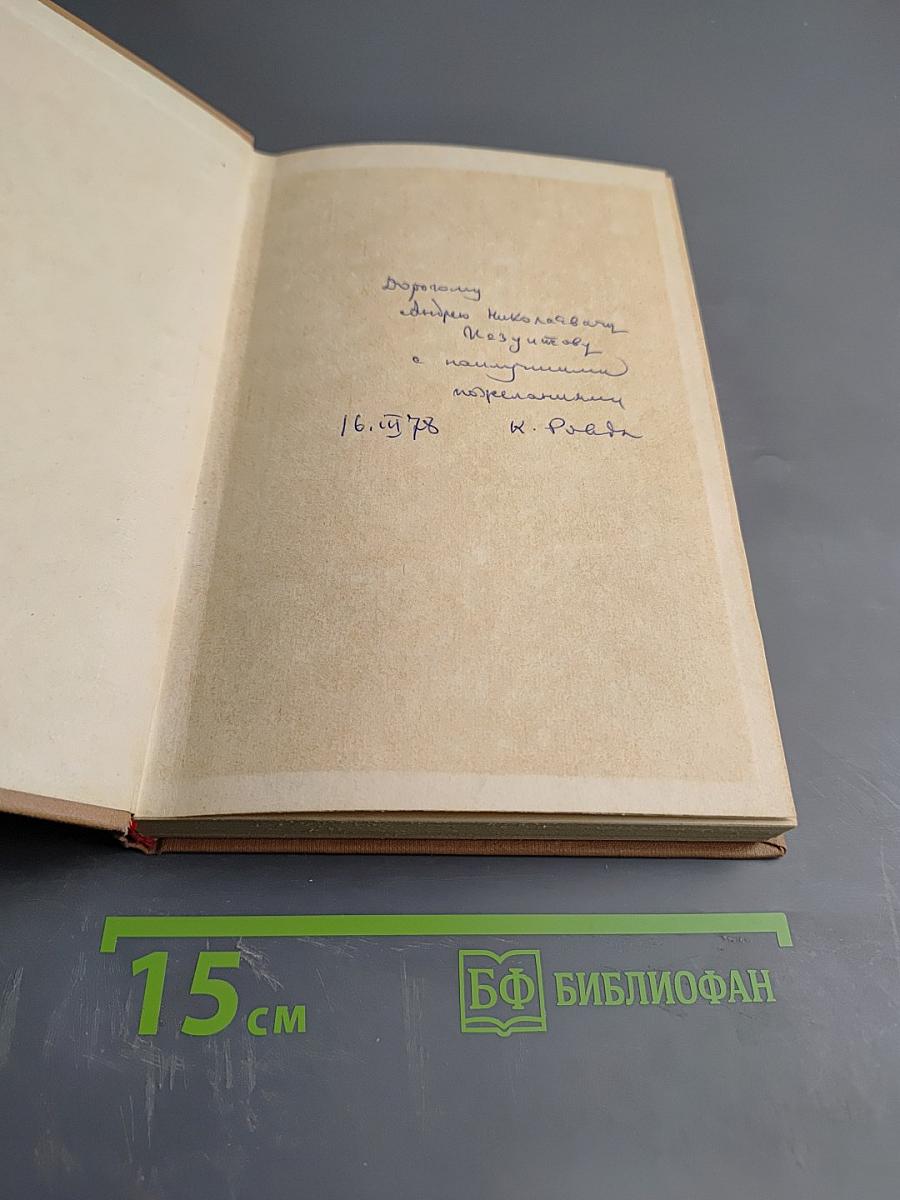 Дорогому
Андрею Николаевичу
Иезуитову
с наилучшими
пожеланиями
16.III 78 К. Ровда
15 см
БФ БИБЛИОФАН